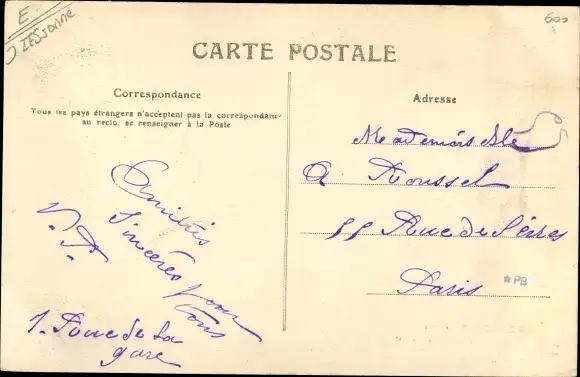 E
ZESSonne
600
CARTE POSTALE
Correspondance
Tous les pays étrangers n'acceptent pas la correspondance
au recto. se renseigner à la Poste
Amitiés
Sincères pour
tous
V. P.
de la
gare
Adresse
Mademoiselle
A Roussel
55 Rue de
Paris
*PB